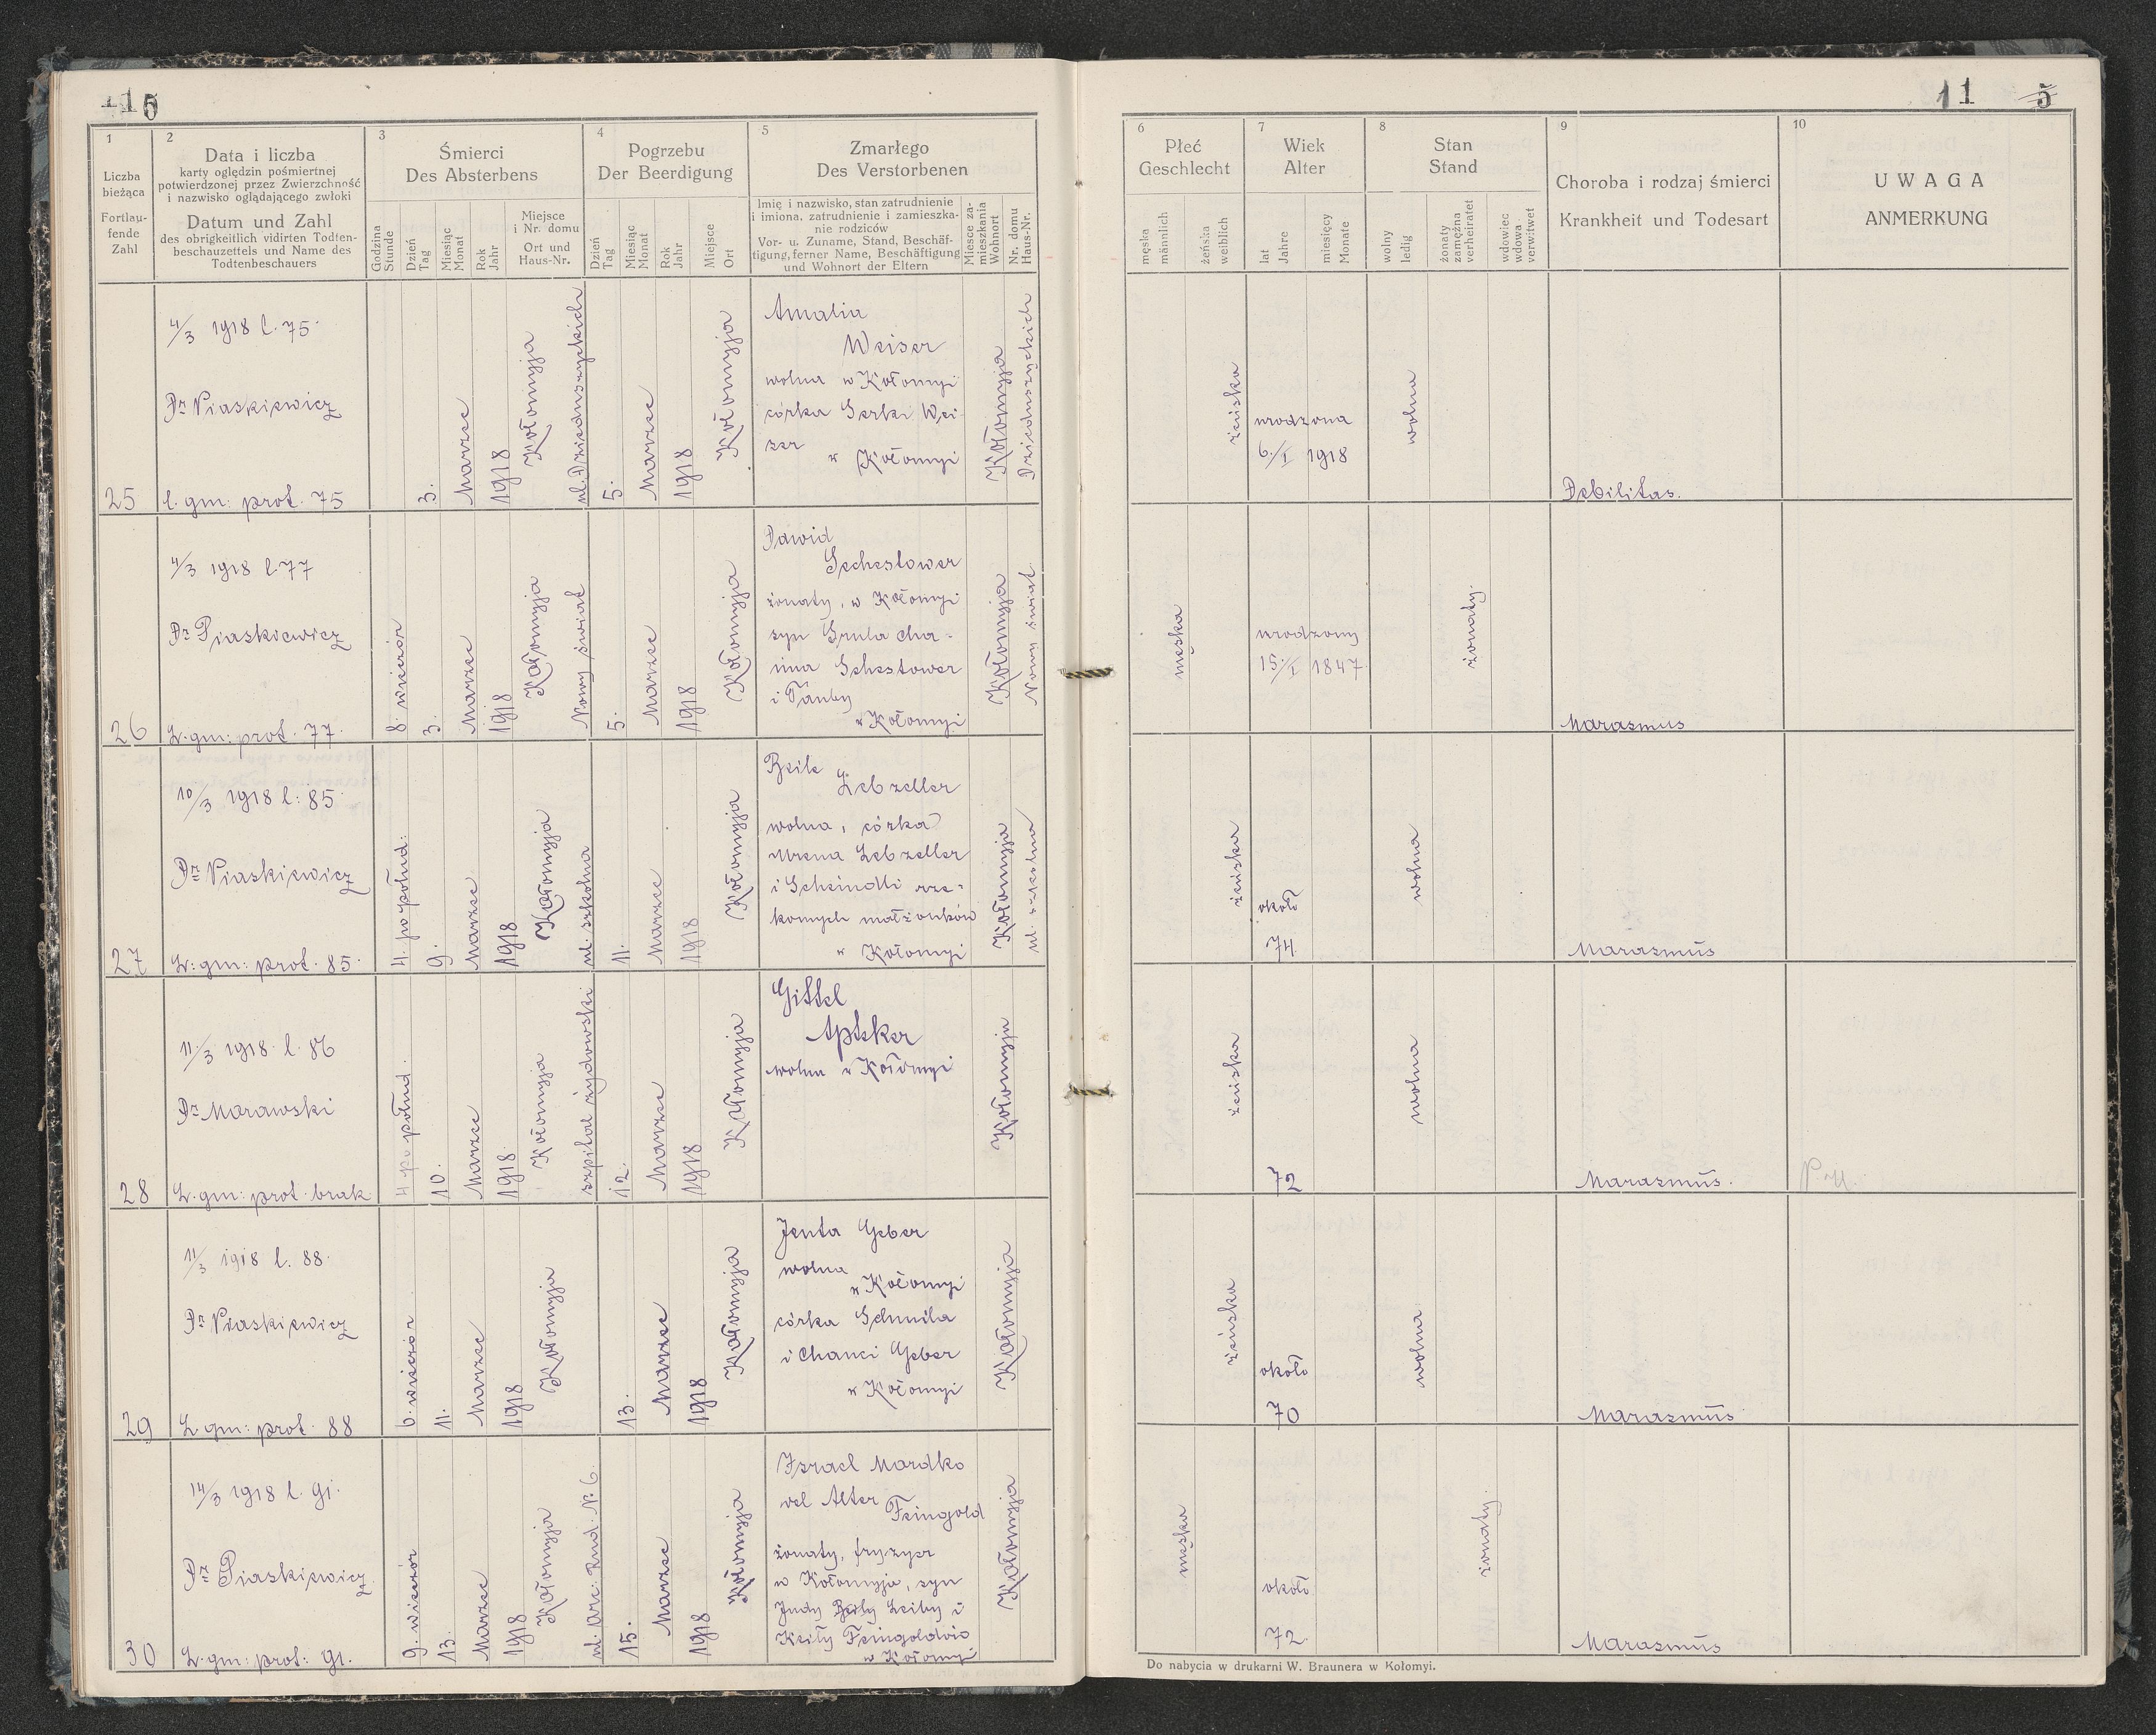 11 5
1
Liczba
bieżąca
Fortlau-
fende
Zahl
2
Data i liczba
karty oględzin pośmiertnej
potwierdzonej przez Zwierzchność
i nazwisko oglądającego zwłoki
Datum und Zahl
des obrigkeitlich vidirten Todten-
beschauzettels und Name des
Todtenbeschauers
3
Śmierci
Des Absterbens
Godzina
Stunde
Dzień
Tag
Miesiąc
Monat
Rok
Jahr
Miejsce
i Nr. domu
Ort und
Haus-Nr.
4
Pogrzebu
Der Beerdigung
Dzień
Tag
Miesiąc
Monat
Rok
Jahr
Miejsce
Ort
5
Zmarłego
Des Verstorbenen
Imię i nazwisko, stan zatrudnienie
i imiona, zatrudnienie i zamieszka-
nie rodziców
Vor- u. Zuname, Stand, Beschäf-
tigung, ferner Name, Beschäftigung
und Wohnort der Eltern
Miesce za-
mieszkania
Wohnort
Nr. domu
Haus-Nr.
6
Płeć
Geschlecht
męska
männlich
żeńska
weiblich
7
Wiek
Alter
lat
Jahre
miesięcy
Monate
8
Stan
Stand
wolny
ledig
żonaty
zamężna
verheiratet
wdowiec
wdowa
verwitwet
9
Choroba i rodzaj śmierci
Krankheit und Todesart
10
UWAGA
ANMERKUNG
25
4/3 1918 l. 75.
Dr Piaskiewicz
l. gm: prot. 75
3.
Marzec
1918
Kołomyja
ul. Dzieduszyckich
5.
Marzec
1918
Kołomyja
Amalia
Weiser
wolna w Kołomyi
córka Gerki Wei-
ser
w Kołomyi
Kołomyja
Dzieduszyckich
żeńska
urodzona
6./I 1918
wolna
Debilitas.
26
4/3 1918 l. 77
Dr Piaskiewicz
L. gm: prot. 77.
8. wieczór
3.
Marzec
1918
Kołomyja
Nowy świat
5.
Marzec
1918
Kołomyja
Dawid
Schestower
żonaty, w Kołomyi
syn Srula Cha-
ima Schestower
i Tauby
w Kołomyi
Kołomyja
Nowy świat
męska
urodzony
15./I 1847
żonaty.
Marasmus
27
10/3 1918 l: 85.
Dr Piaskiewicz
L: gm: prot. 85.
4. po połud:
9.
Marzec
1918
Kołomyja
ul. szkolna
11.
Marzec
1918
Kołomyja
Beile
Lebzelter
wolna, córka
Urena Lebzelter
i Scheindli rze-
komych małżonków
w Kołomyi
Kołomyja
ul. szkolna
żeńska
około
74
wolna
Marasmus
28
11./3 1918. l. 86
Dr Morawski
L. gm: prot. brak
4 po połud.
10.
Marzec
1918
Kołomyja
szpital żydowski
12.
Marzec
1918
Kołomyja
Gittel
Apteker
wolna w Kołomyi
Kołomyja
żeńska
72
wolna
Marasmus.
29
11/3 1918 l. 88.
Dr Piaskiewicz
L gm: prot. 88
6. wieczór
11.
Marzec
1918
Kołomyja
13.
Marzec
1918
Kołomyja
Jenta Geber
wolna
w Kołomyi
córka Schmila
i Chanci Geber
w Kołomyi
Kołomyja
żeńska
około
70
wolna
Marasmus
30
14/3 1918 l. 91.
Dr Piaskiewicz
L. gm: prot: 91.
9. wieczór
13.
Marzec
1918
Kołomyja
ul. Arc: Rud. N. 6.
15.
Marzec
1918
Kołomyja
Israel Mordko
vel Alter Feingold
żonaty, fryzyer
w Kołomyja, syn
Judy Leiby i
Keily Feingoldów
w Kołomyi
Kołomyja
męska
około
72.
żonaty.
Marasmus
Do nabycia w drukarni W. Braunera w Kołomyi.